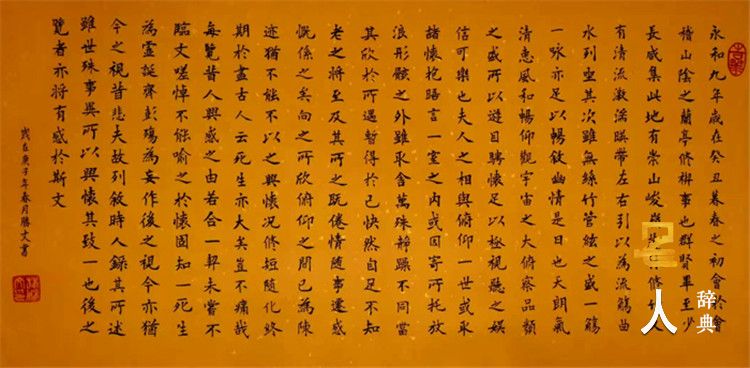 永和九年歲在癸丑暮春之初會於會
稽山陰之蘭亭修禊事也群賢畢至少
長咸集此地有崇山峻嶺茂林修竹又
有清流激湍暎帶左右引以為流觴曲
水列坐其次雖無絲竹管絃之盛一觴
一詠亦足以暢敘幽情是日也天朗氣
清惠風和暢仰觀宇宙之大俯察品類
之盛所以遊目騁懷足以極視聽之娛
信可樂也夫人之相與俯仰一世或取
諸懷抱晤言一室之內或因寄所托放
浪形骸之外雖取舍萬殊靜躁不同當
其欣於所遇暫得於己快然自足不知
老之將至及其所之既倦情隨事遷感
慨係之矣向之所欣俯仰之間已為陳
迹猶不能不以之興懷況修短隨化終
期於盡古人云死生亦大矣豈不痛哉
每覽昔人興感之由若合一契未嘗不
臨文嗟悼不能喻之於懷固知一死生
為虛誕齊彭殤為妄作後之視今亦猶
今之視昔悲夫故列敘時人錄其所述
雖世殊事異所以興懷其致一也後之
覽者亦將有感於斯文
歲在庚子年春月勝文書
名人辞典